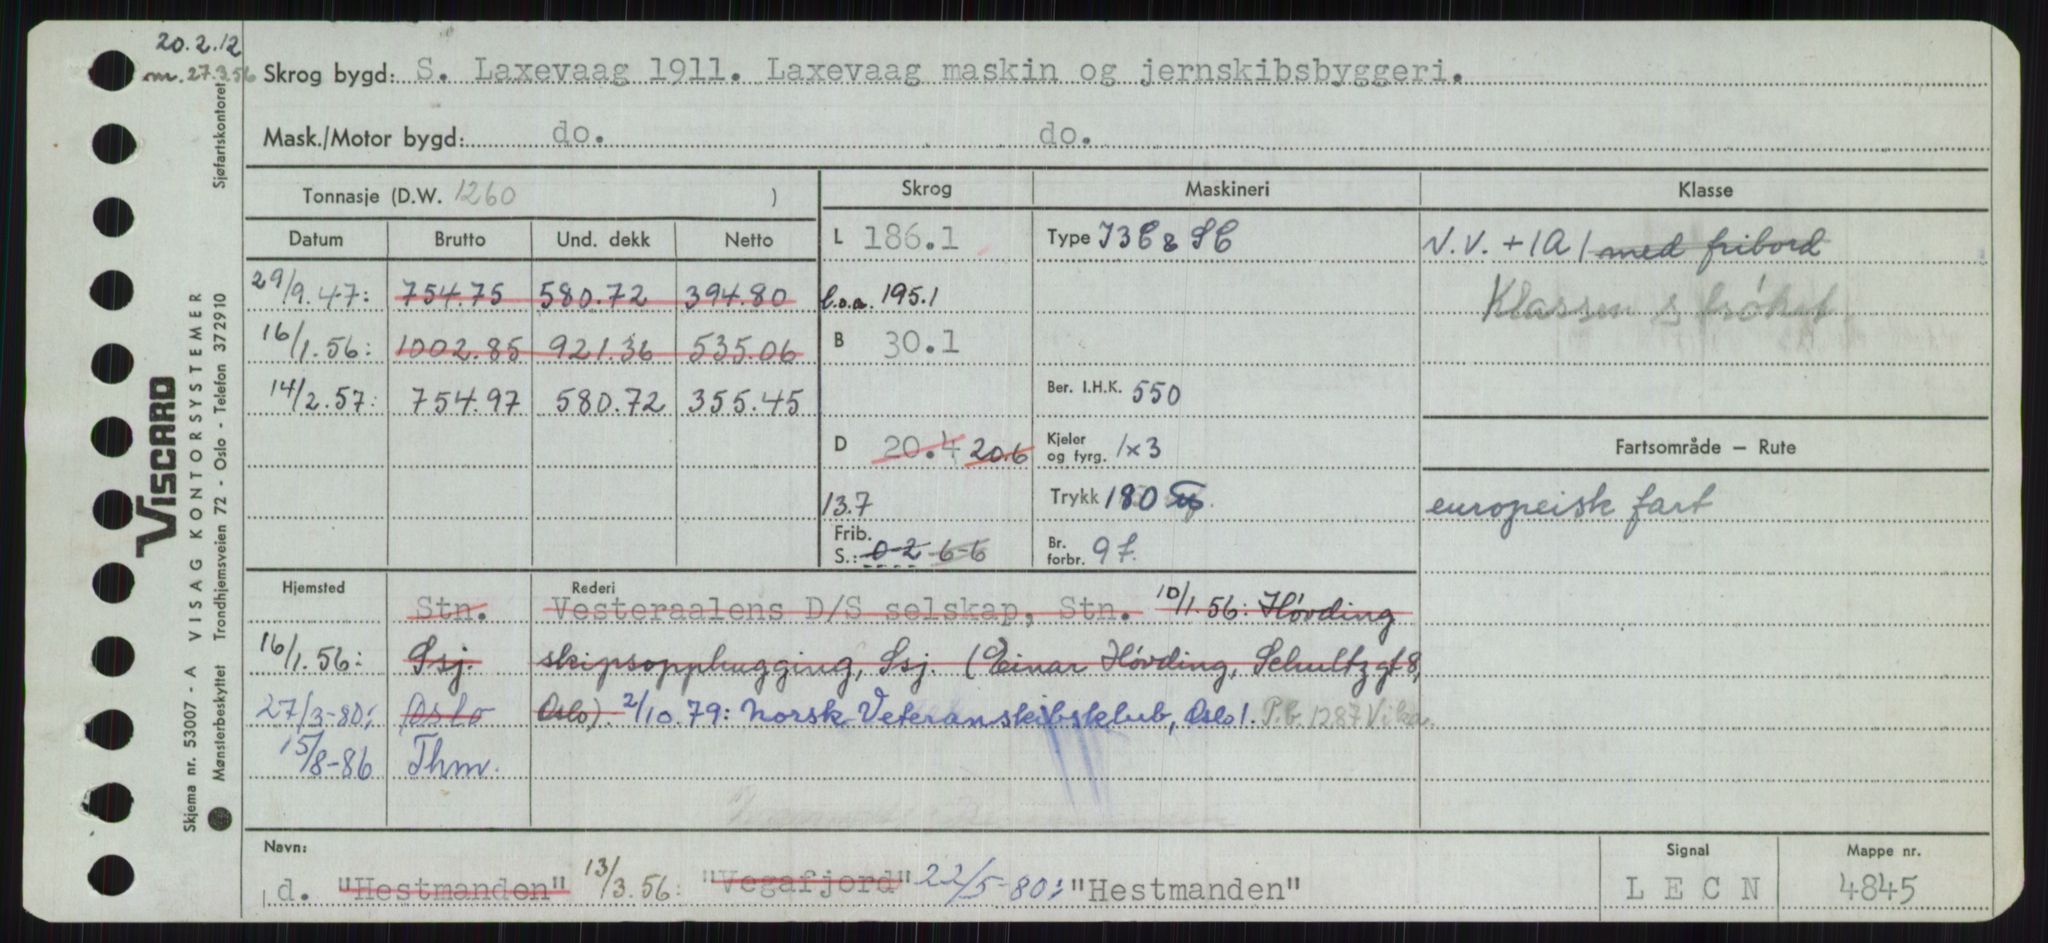 20.2.12
m. 27.3.56
Skrog bygd: S. Laxevaag 1911. Laxevaag maskin og jernskibsbyggeri.
Mask./Motor bygd: do. do.
Tonnasje (D.W. 1260 )
Skrog
Maskineri
Klasse
Datum Brutto Und. dekk Netto
29/9.47: 754.75 580.72 394.80
16/1.56: 1002.85 921.36 535.06
14/2.57: 754.97 580.72 355.45
L 186.1
l.o.a. 195.1
B 30.1
D 20.4 20.6
13.7
Frib.
S.: 0-2 6-6
Type J3C & SC
Ber. I.H.K. 550
Kjeler
og fyrg. 1x3
Trykk 180
Br.
forbr. 9 t.
N.V. + 1A1 med fribord
Klassen strøket
Fartsområde — Rute
europeisk fart
Hjemsted Rederi
Stn. Vesteraalens D/S selskap, Stn. 10/1.56: Høvding
16/1.56: Ssj. skipsopphugging, Ssj. (Einar Høvding, Schultzgt 8,
27/3-80: Oslo Oslo). 2/10.79: Norsk Veteranskibsklub, Oslo 1. P.b. 1287 Vika.
15/8-86 Thm.
Navn:
d. "Hestmanden" 13/3.56: "Vegafjord" 22/5-80: "Hestmanden"
Signal
L E C N
Mappe nr.
4845
VISCARD
Skjema nr. 53007 - A VISAG KONTORSYSTEMER
Mønsterbeskyttet Trondhjemsveien 72 - Oslo - Telefon 372910 Sjøfartskontoret